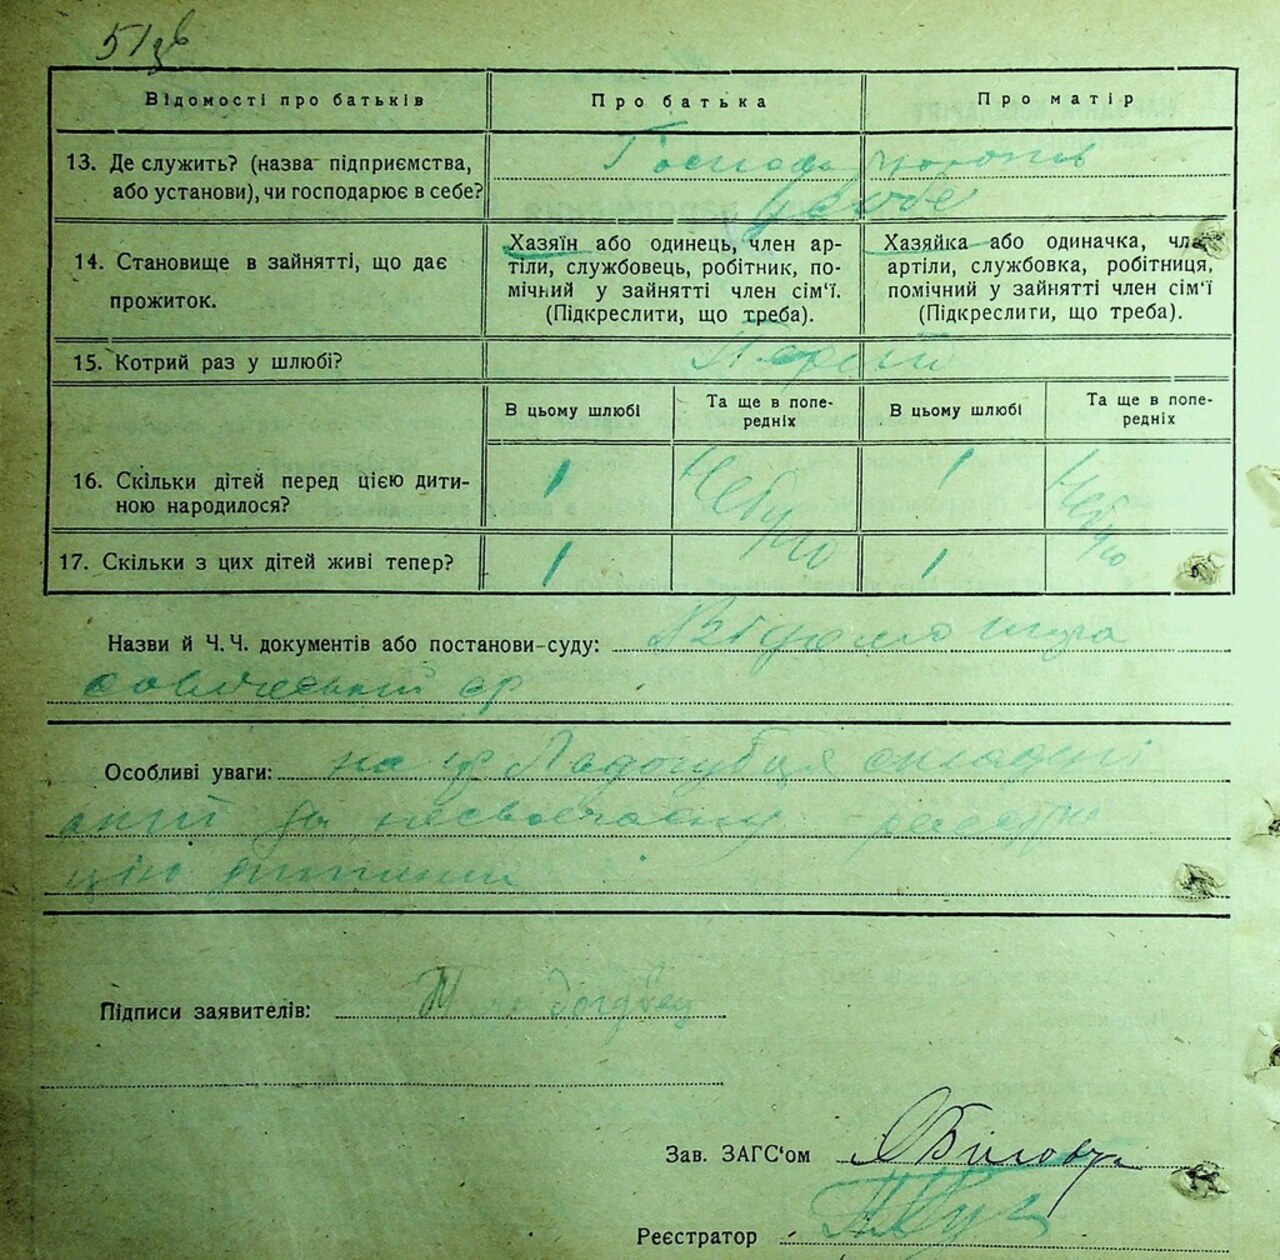 51
Відомості про батьків
Про батька
Про матір
13. Де служить? (назва підприємства,
або установи), чи господарює в себе?
у себе
14. Становище в зайнятті, що дає
прожиток.
Хазяїн або одинець, член ар-
тіли, службовець, робітник, по-
мічний у зайнятті член сім‘ї.
(Підкреслити, що треба).
Хазяйка або одиначка, член
артіли, службовка, робітниця,
помічний у зайнятті член сім‘ї
(Підкреслити, що треба).
15. Котрий раз у шлюбі?
Перший
В цьому шлюбі
Та ще в попе-
редніх
В цьому шлюбі
Та ще в попе-
редніх
16. Скільки дітей перед цією дити-
ною народилося?
1
Небуло
1
Небуло
17. Скільки з цих дітей живі тепер?
1
1
Назви й Ч. Ч. документів або постанови-суду:
Особливі уваги: на гр
акт за несвоєчасну реєстра
цію дитини
Підписи заявителів:
Зав. ЗАГС‘ом
Реєстратор